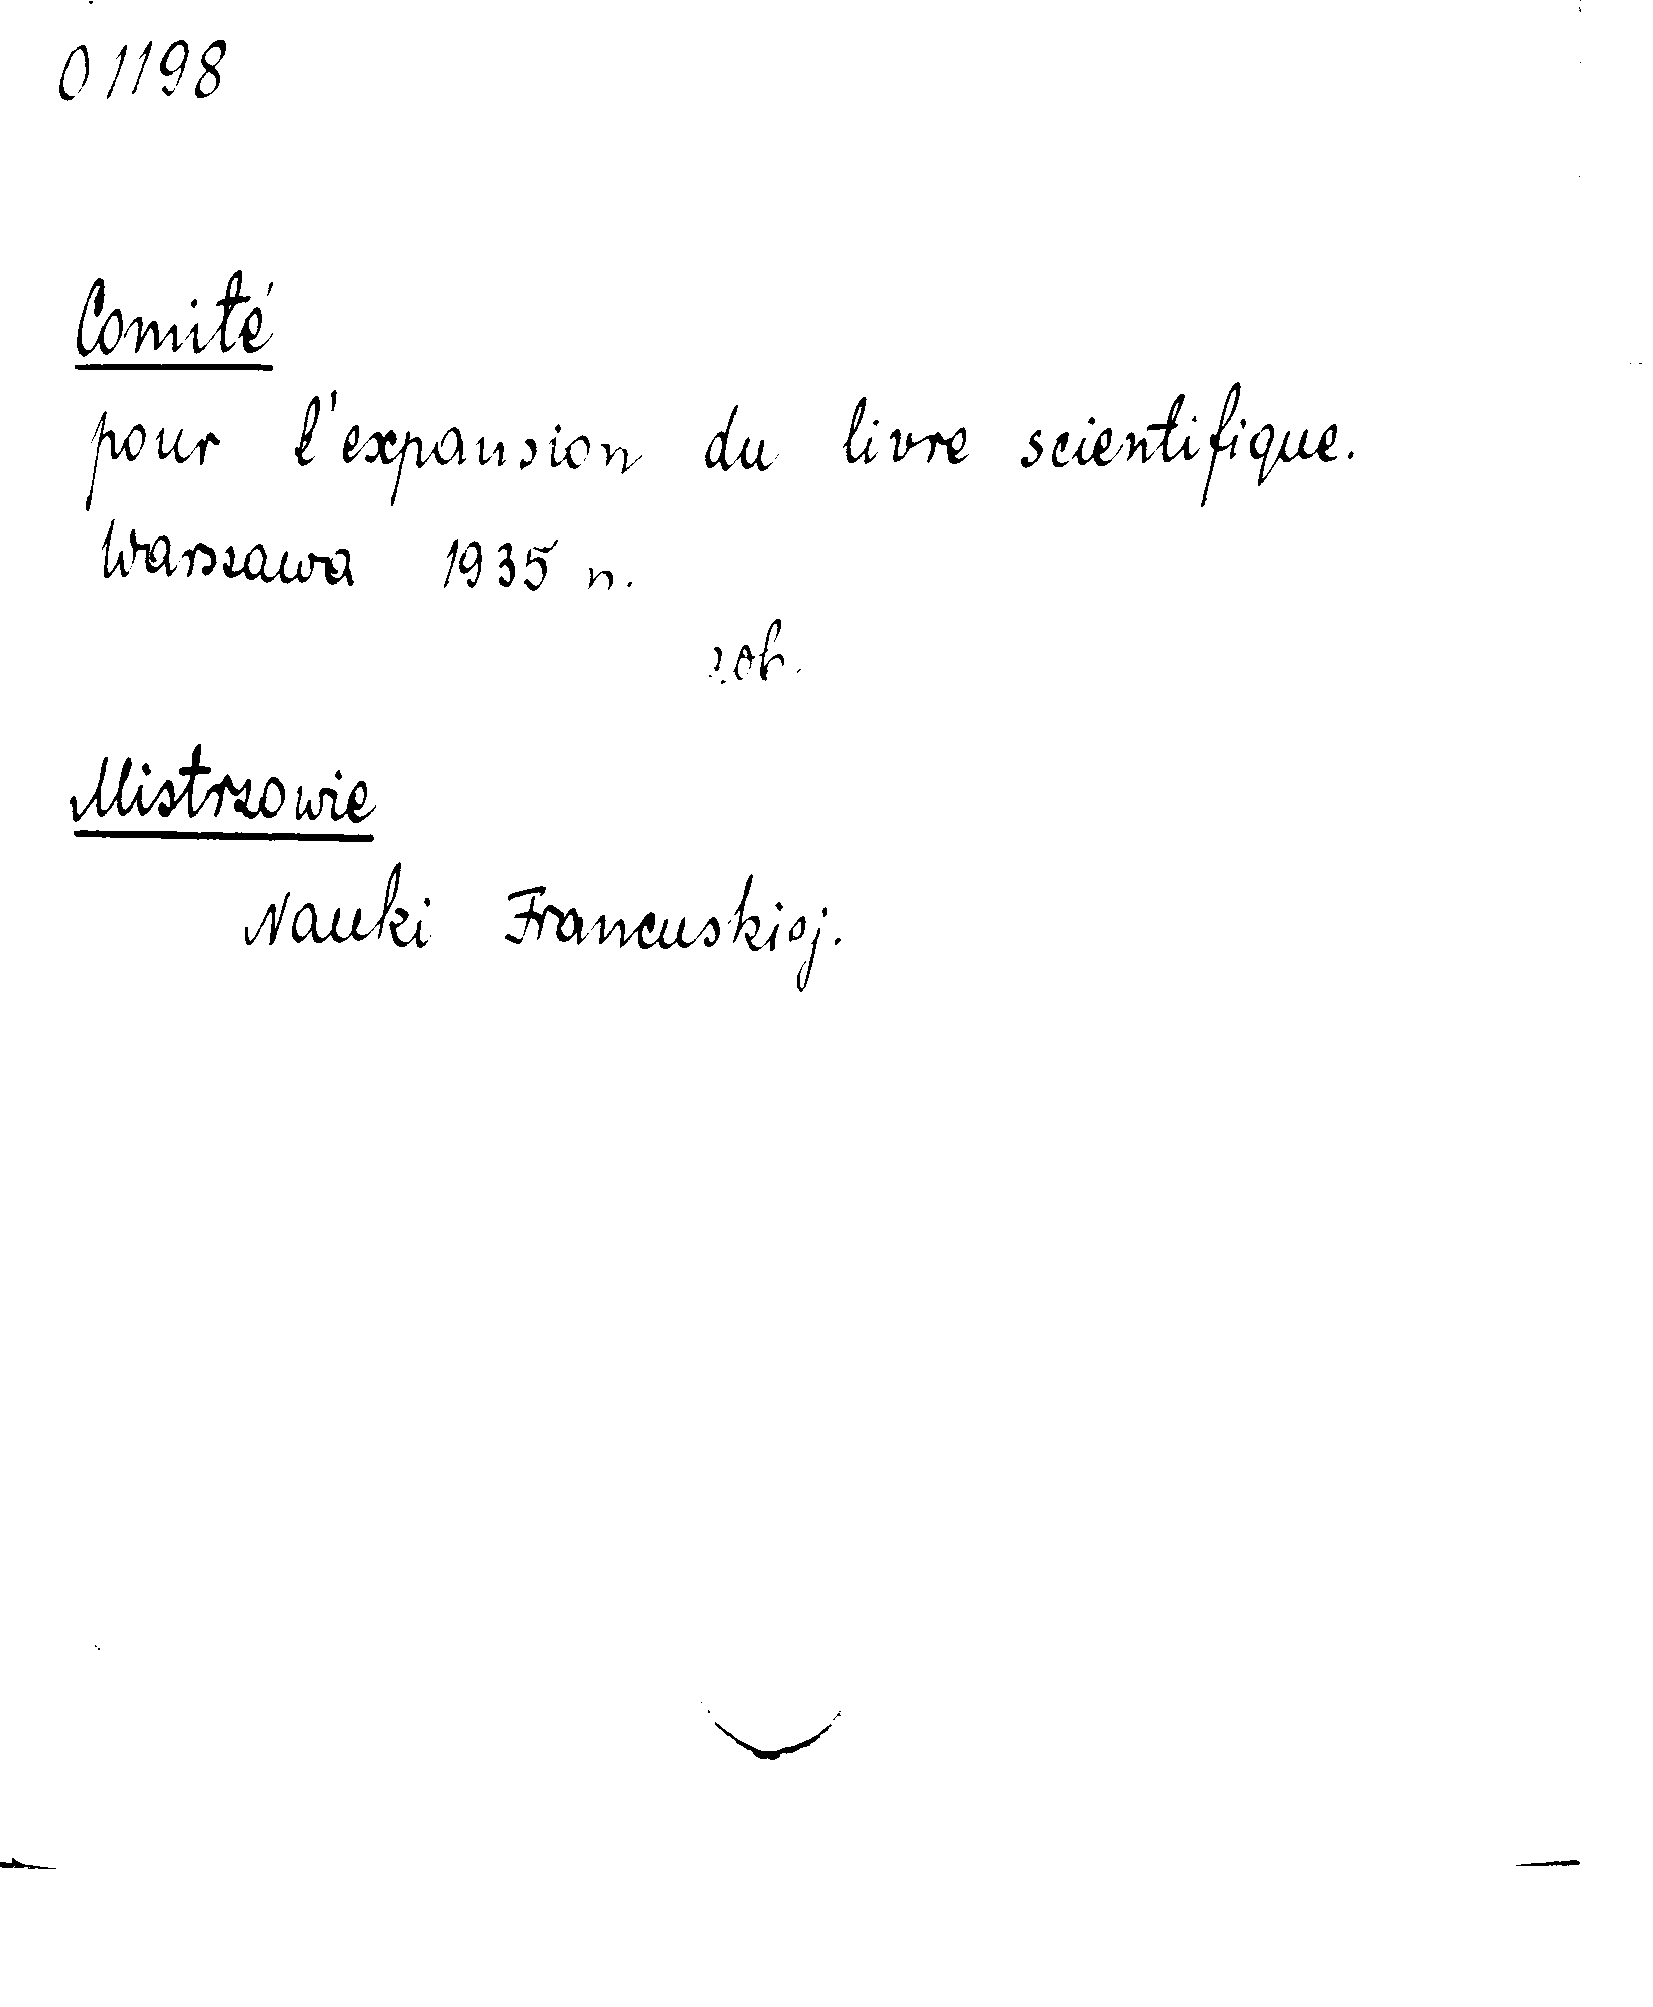 01198
Comité
pour l'expansion du livre scientifique.
Warszawa 1935 r.
zob.
Mistrzowie
Nauki Francuskiej.